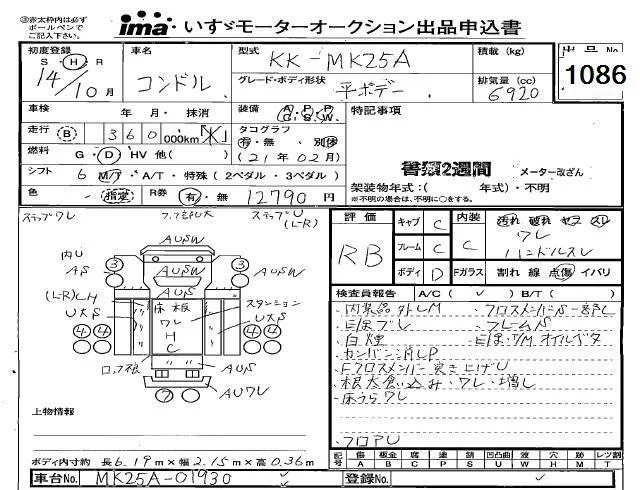 注意 赤太枠内は必ず
ボールペンで
ご記入下さい。
ima いすゞモーターオークション出品申込書
初度登録
S・H・R
14/10月
車名
コンドル
型式
KK-MK25A
グレード・ボディ形状
平ボデー
積載(kg)
排気量(cc)
6920
出品 No
1086
車検
年 月・抹消
装備
A/C P/S P/W
特記事項
走行 B 360 000km「K」
タコグラフ
有・無・別体
(21年02月)
燃料
G・D・HV 他( )
書類2週間
メーター改ざん
シフト
6 M/T・A/T・特殊(2ペダル・3ペダル)
架装物年式:( 年式)・不明
※不明の場合は、不明に○をする。
色
指定
R券
有・無 12790円
ステップワレ
ステップU
(L-R)
AUSW
内U
AS
3
AUSW
3
AUSW
AUS
(L-R)CH
床 根板
ワレ
H
C
スタンション
U大S
U大S
4 4
4 4
ロープ根
AUS
AUS
AUワレ
7
評価
RB
キャブ C
フレーム C
ボディ D
内装
C
Fガラス
汚れ 破れ ヤケ スレ
ワレ
ハンドルスレ
割れ 線 点傷 イバリ
検査員報告
A/C( ✓ ) B/T( )
内装品外しM
フロスメンバー
E/Gブレ
フレームS
白煙
E/G・T/M オイルバタ
Fクロスメンバー突き上げU
根太食い込み・ワレ・増し
床うらワレ
フロアU
上物情報
ボディ内寸約 長6.19m×幅2.15m×高0.36m
記号 傷 板金 腐 塗 凹凸曲 穴 跡 レツ割
A B C P S U W H M T
車台No. MK25A-01930
登録No.